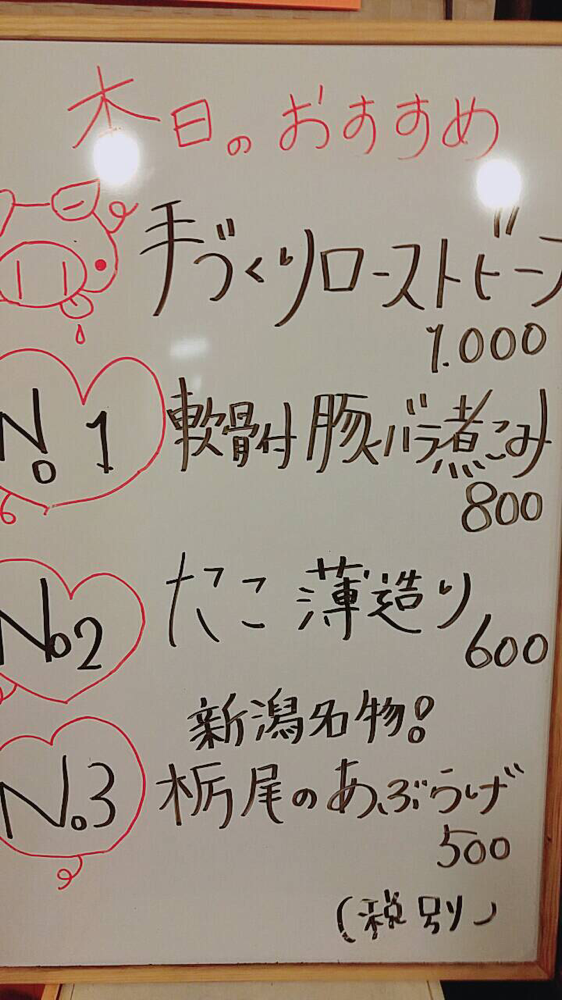 本日のおすすめ
手づくりローストビーフ
1.000
No 1
軟骨付豚バラ煮こみ
800
No2
たこ薄造り
600
新潟名物!
No.3
栃尾のあぶらげ
500
(税別)